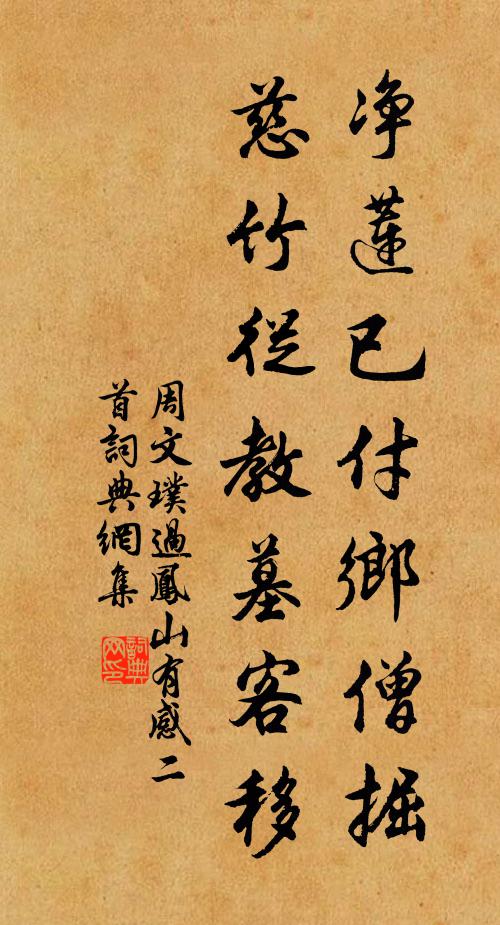 净蓮已付鄉僧掘
慈竹從教墓客移
周文璞過鳳山有感二
首詞典網集
詞典
网印